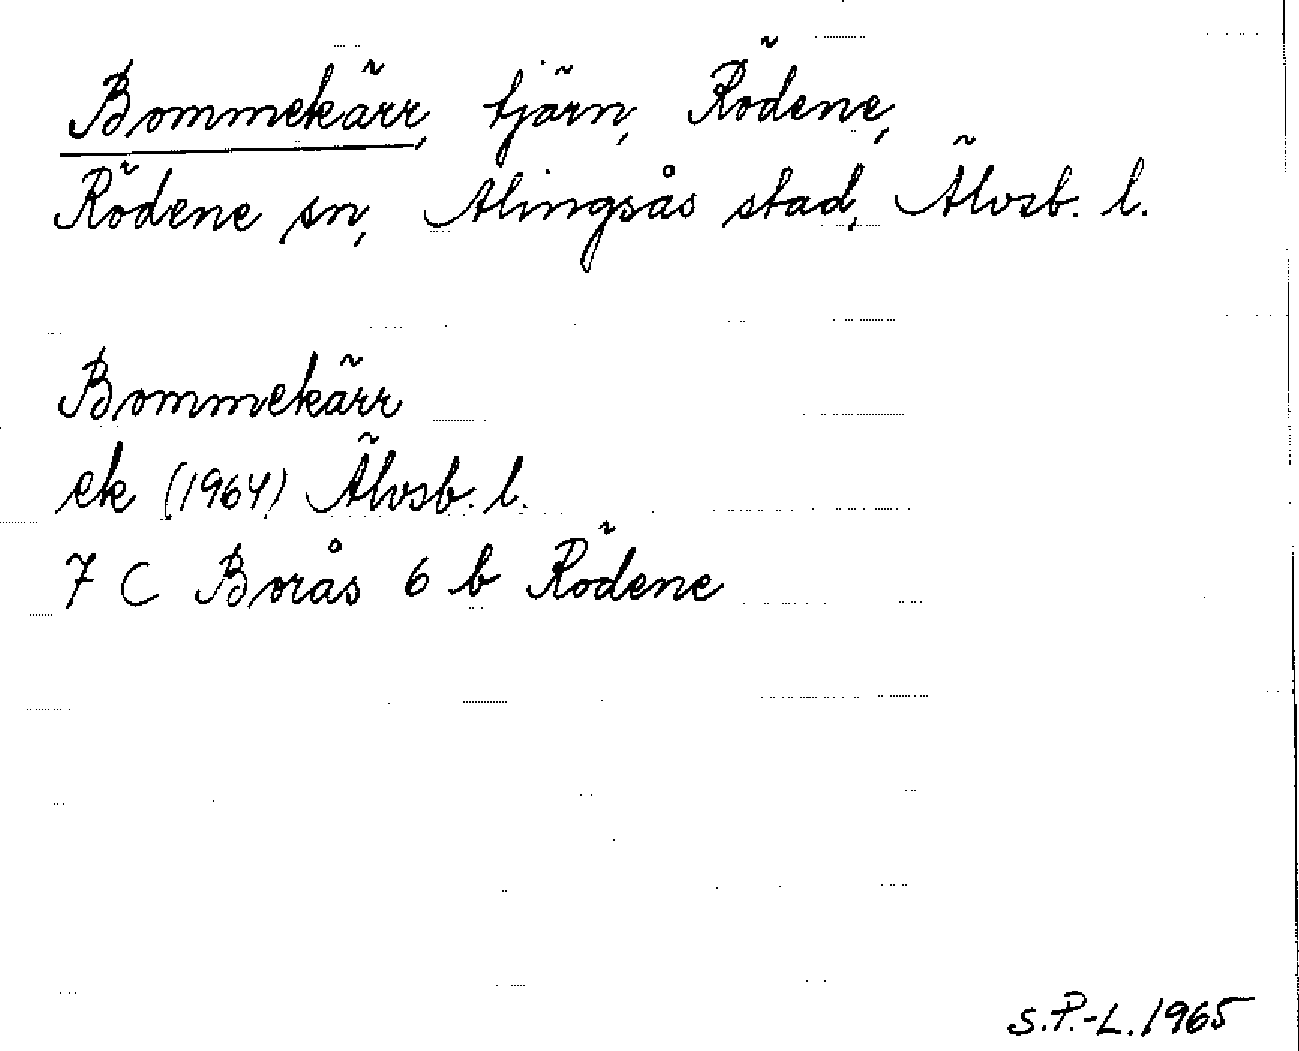 Bommekärr, tjärn, Rödene,
Rödene sn, Alingsås stad, Älvsb. l.
Bommekärr
ek (1964) Älvsb. l.
7 C Borås 6 b Rödene
S.P.-L. 1965